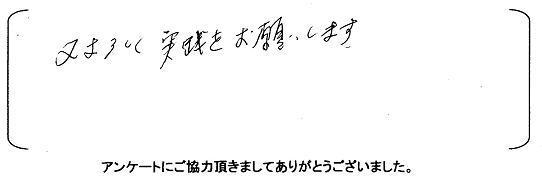 又よろしく実践をお願いします
アンケートにご協力頂きましてありがとうございました。